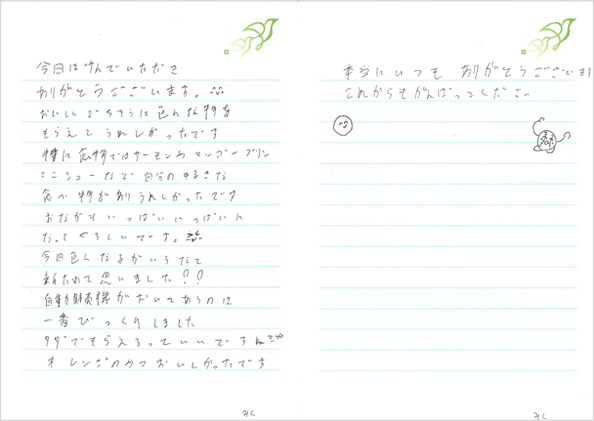 今日はよんでいただき
ありがとうございます。
おいしいごちそうに色んな物を
もらえてうれしかったです
特に食物ではサーモンやマンゴープリン
ミニシューなど自分のすきな
食べ物がありうれしかったです
おなかもいっぱいいっぱいに
なってくるしいです。
今日色んな
新ためて思いました!!
自動販売機がおいてあるのは
一番びっくりしました
タダでもらえるっていいですね
オレンジのやつおいしかったです
みく
本当にいつもありがとうございます
これからもがんばってください
みく